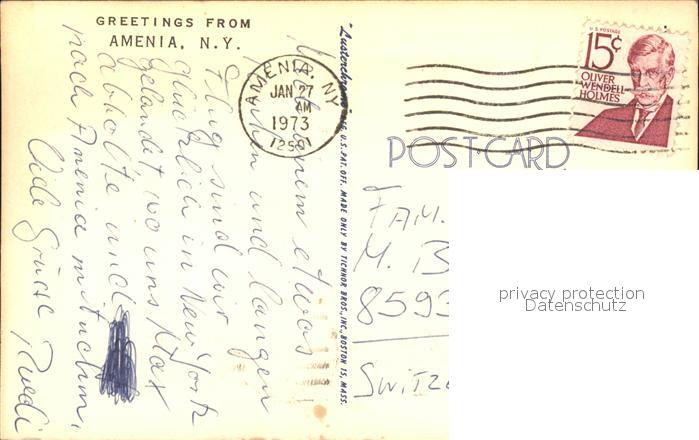 GREETINGS FROM
AMENIA, N.Y.
AMENIA, NY
JAN 27
AM
1973
12501
U.S. POSTAGE
15¢
OLIVER
WENDELL
HOLMES
POST CARD
"Lusterchrome" REG. U.S. PAT. OFF. MADE ONLY BY TICHNOR BROS., INC., BOSTON 15, MASS.
Nach einem etwas
und langen
Flug sind wir
glücklich in New York
gelandet wo uns Max
abholte und
nach Amenia mitnahm.
Viele Grüsse Ruedi
FAM.
M. B
8593
SWITZE
privacy protection
Datenschutz